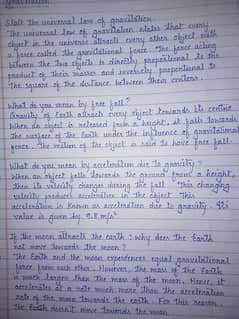 State the universal law of gravitation.
The universal law of gravitation states that every
object in the universe attracts every other object with
a force called the gravitational force. The force acting
between the two objects is directly proportional to the
product of their masses and inversely proportional to
the square of the distance between their centers.
What do you mean by free fall?
Gravity of Earth attracts every object towards its centre.
When an object is released from a height, it falls towards
the surface of the Earth under the influence of gravitational
force. The motion of the object is said to have free fall.
What do you mean by acceleration due to gravity?
When an object falls towards the ground from a height,
then its velocity changes during the fall. This changing
velocity produces acceleration in the object. This
acceleration is known as acceleration due to gravity. Its
value is given by 9.8 m/s².
If the moon attracts the earth, why does the Earth
not move towards the moon?
The Earth and the moon experiences equal gravitational
force from each other. However, the mass of the Earth
is much larger than the mass of the moon. Hence, it
accelerates at a rate much more than the acceleration
rate of the moon towards the earth. For this reason,
the Earth doesn't move towards the moon.